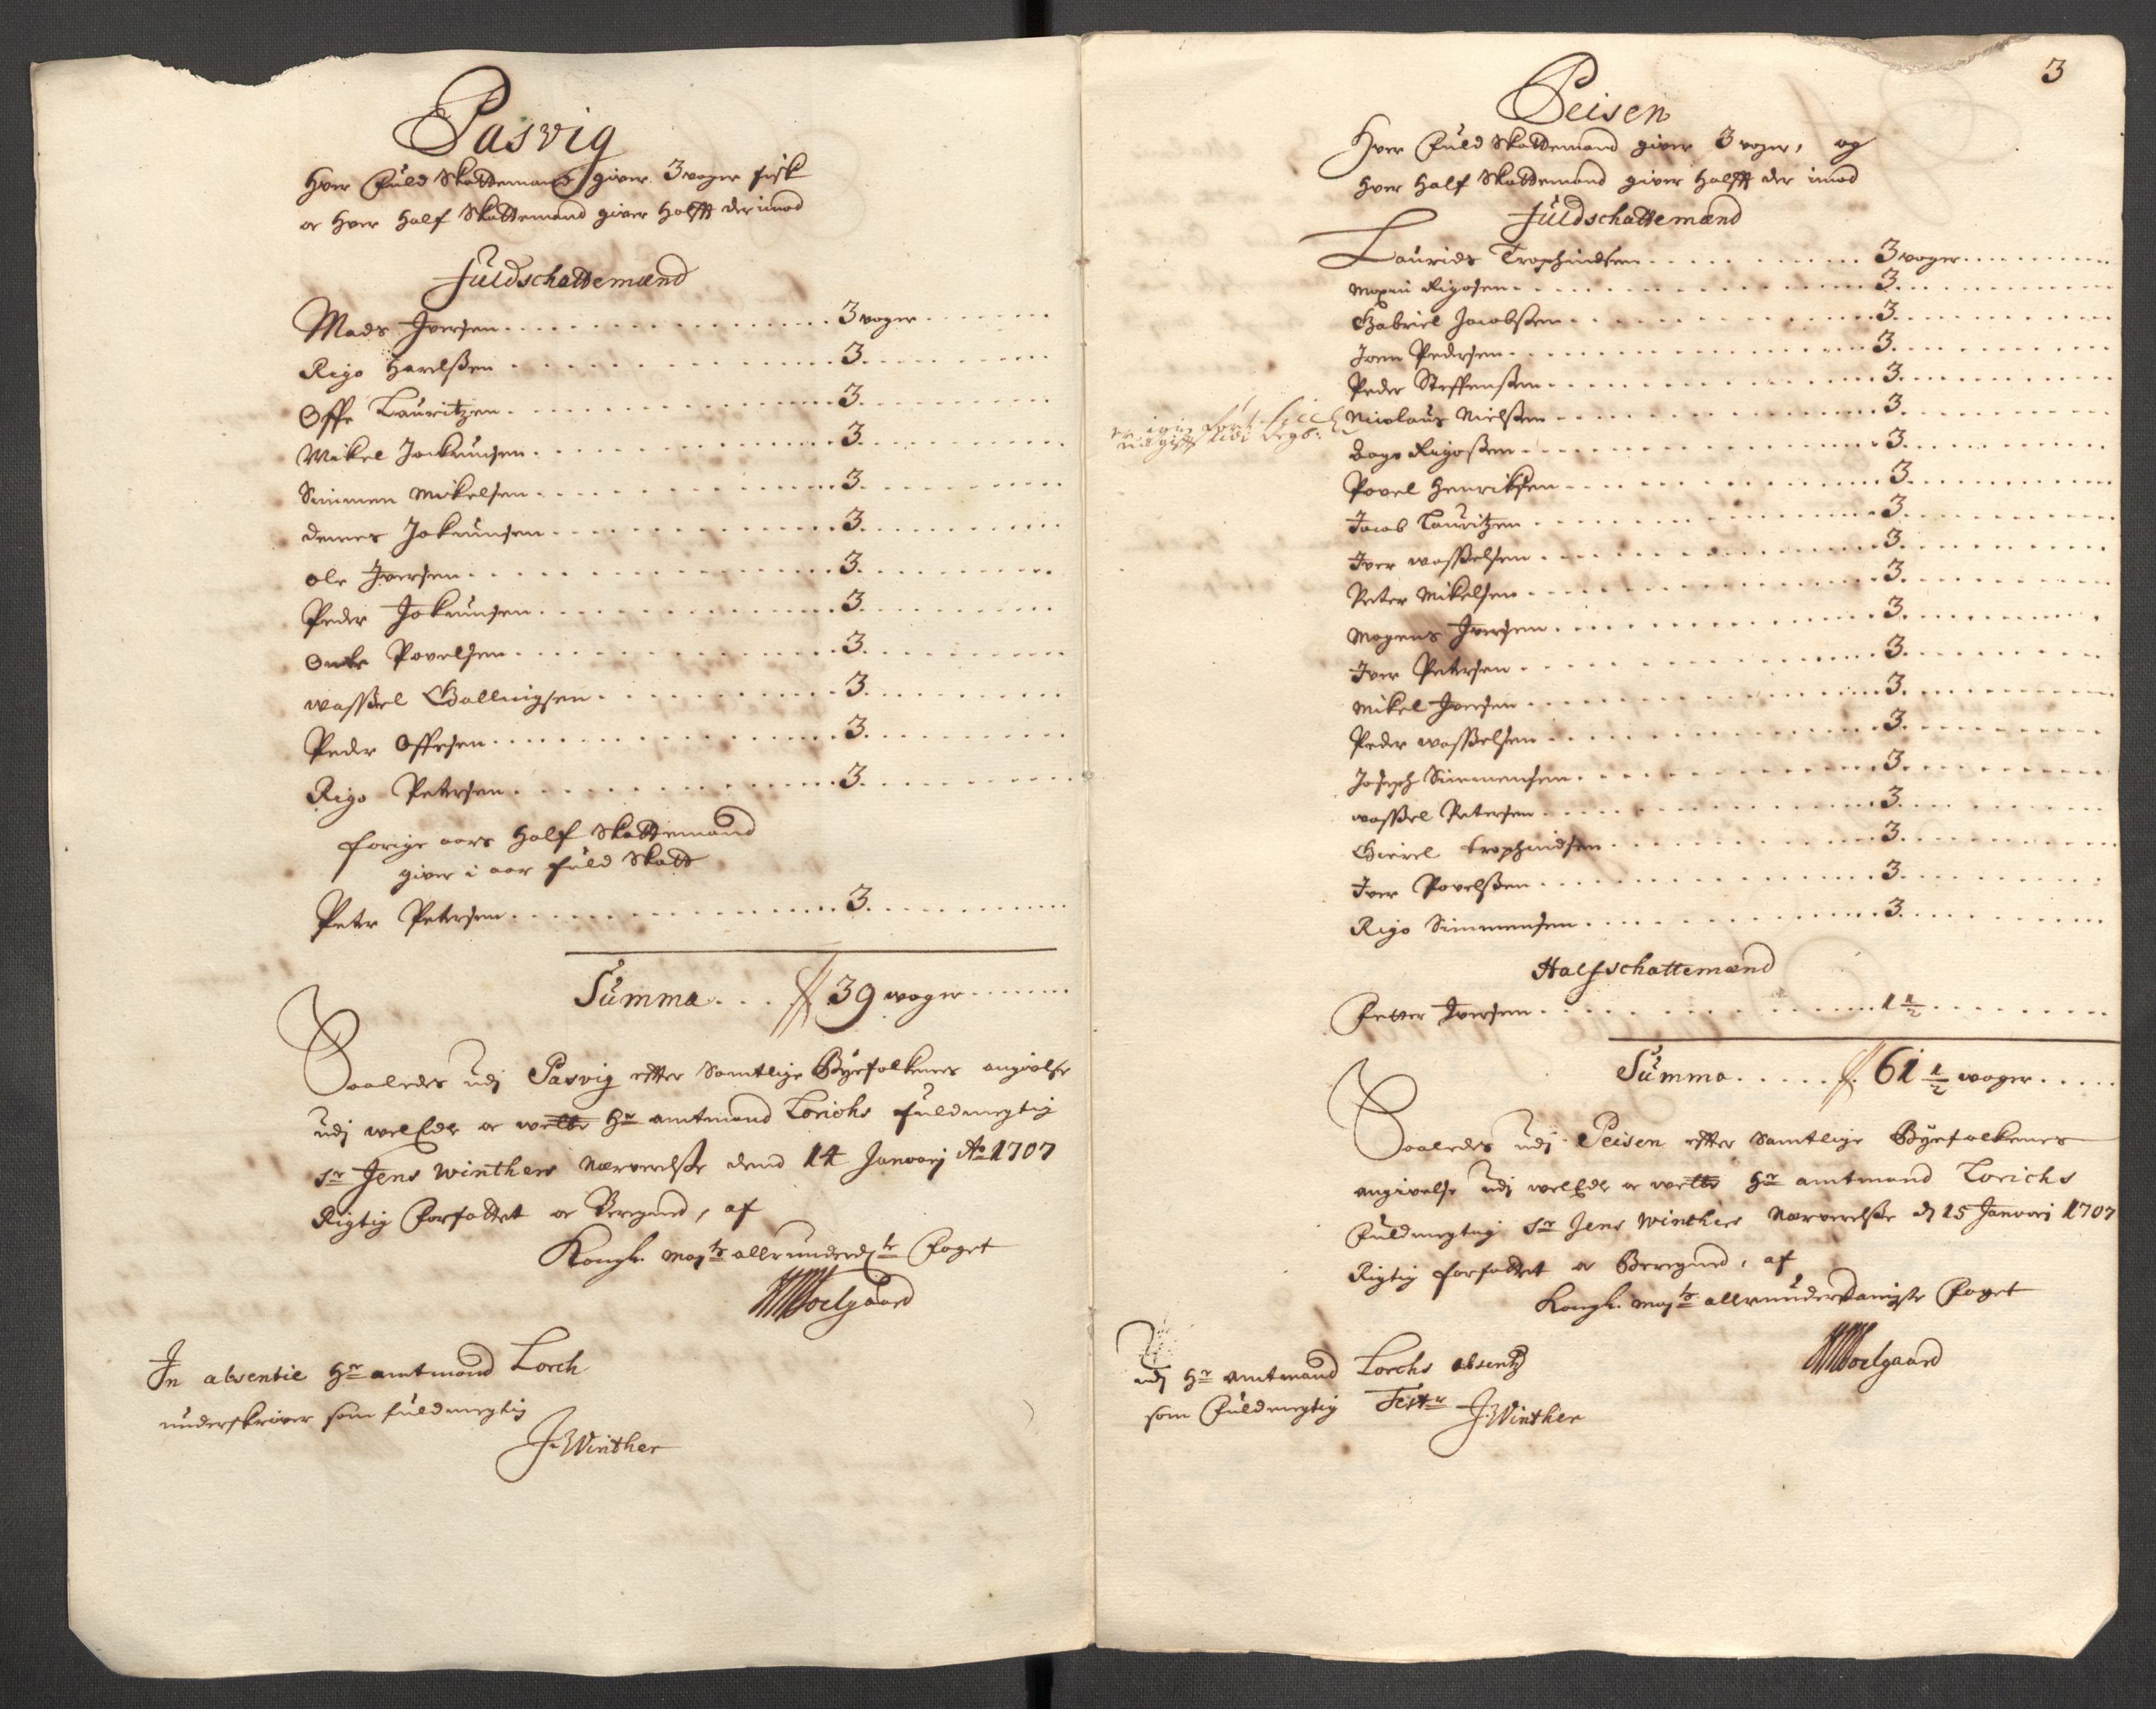 Pasvig
Hver Fuld Skattemand giver 3 voger fisk
oc hver Half Skattemand giver Halfft der imod
Fuldschattemænd
Mads Iversen 3 voger
Rigo Harelssen 3
Offe Lauritzen 3
Mikel Jokumsen 3
Simmen Mikelsen 3
Jokumsen 3
Ole Iversen 3
Peder Jokumsen 3
Povelsen 3
Wassel Gallnigsen 3
Peder Offesen 3
Rigo Petersen 3
forige aars Half Skattemand
giver i aar fuld Skatt
Petter Petersen 3
Summa 39 voger
Saaledes udj Pasvig efter Samtlige Byefolkenes angivelse
udj welEdle oc Hr amtmand Lorichs fuldmegtig
Sr Jens Winthers Nærverelse dend 14 Januarj Ao 1707
Rigtig Forfattet oc Beregned, af
Kongl. Maytz allerunderdste Foget
In absentie Hr amtmand Lorch
underskriver som fuldmegtig
J. Winther
3
Peisen
Hver Fuld Skattemand giver 3 voger, og
hver Half Skattemand giver Halfft der imod
Fuldschattemænd
Laurids Trophindsen 3 voger
Rigosen 3
Gabriel Jacobsen 3
Joen Pedersen 3
Peder Steffensen 3
Nicolaus Nielsen 3
Dago Rigossen 3
Povel Henriksen 3
Jacob Lauritzen 3
Iver Wasselsen 3
Peter Mikelsen 3
Mogens Iversen 3
Iver Petersen 3
Mikel Iversen 3
Peder Wasselsen 3
Joseph Simmensen 3
Wassel Petersen 3
Trophindsen 3
Iver Povelssen 3
Rigo Simmensen 3
Halfschattemænd
Petter Iversen 1 1/2
Summa 61 1/2 woger
Saaledes udj Peisen efter Samtlige Byefolkenes
angivelse udj welEdle oc Hr amtmand Lorichs
Fuldmegtig Sr Jens Winthers Nærverelse d 15 Januarj 1707
Rigtig forfattet oc Beregned, af
Kongl. Maytz allerunderdanigste Foget
udj Hr Amtmand Lorchs absentz
som Fuldmegtig Testr J. Winther